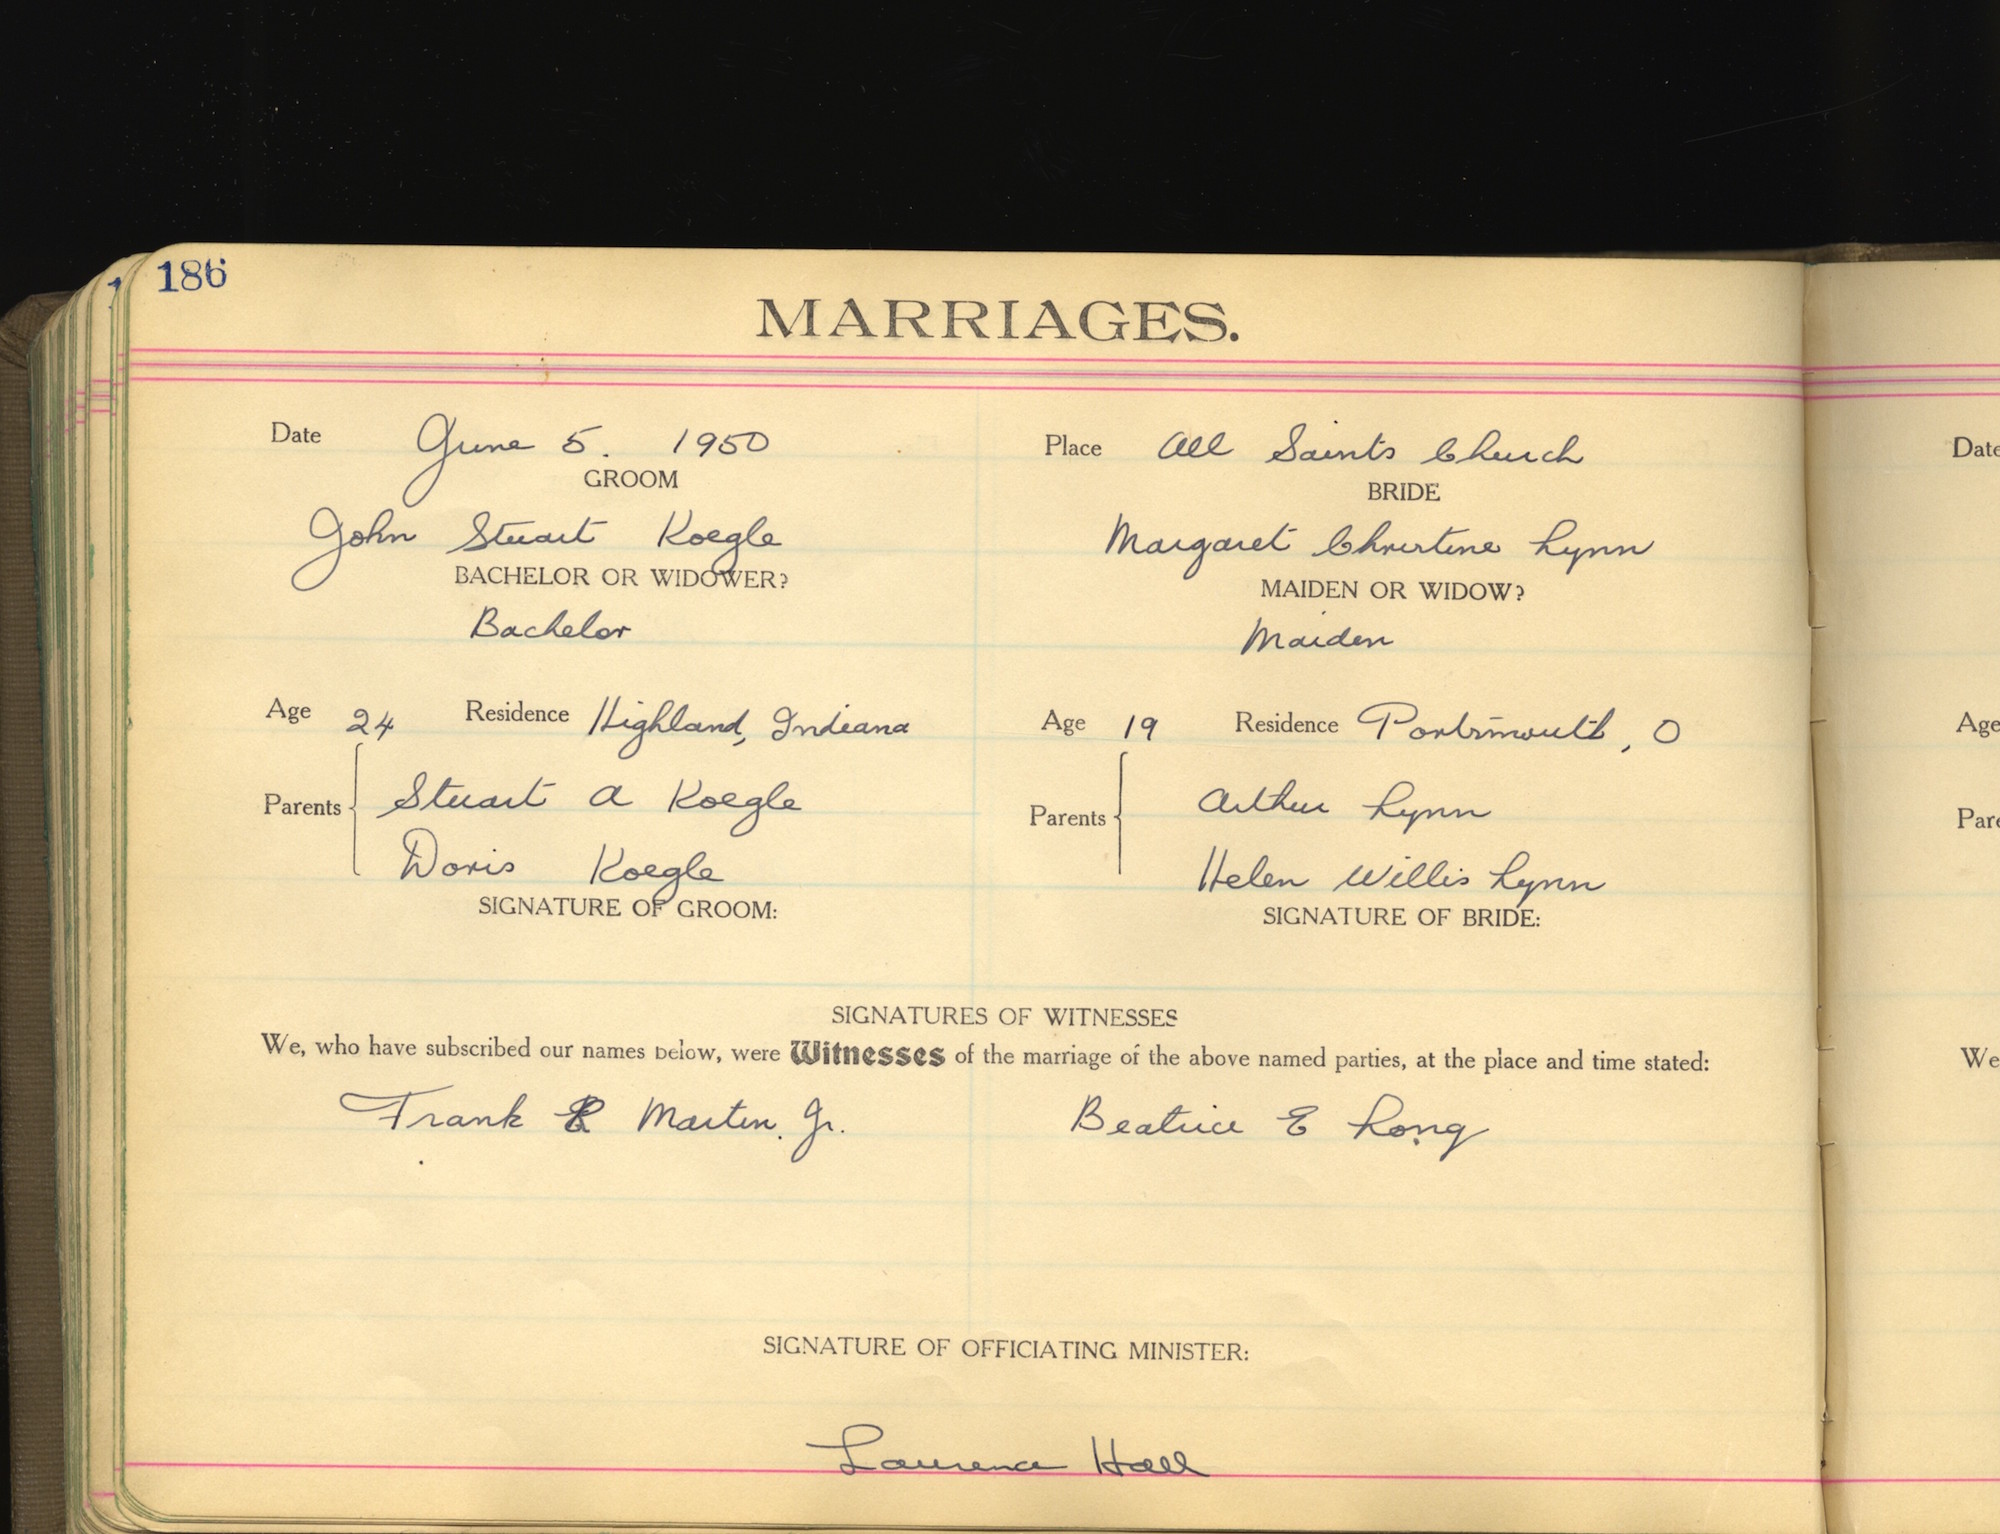 186
MARRIAGES.
Date June 5. 1950 Place All Saints Church
GROOM BRIDE
John Stuart Koegle Margaret Christine Lynn
BACHELOR OR WIDOWER? MAIDEN OR WIDOW?
Bachelor Maiden
Age 24 Residence Highland, Indiana Age 19 Residence Portsmouth, O
Parents Stuart A Koegle Parents Arthur Lynn
Doris Koegle Helen Willis Lynn
SIGNATURE OF GROOM: SIGNATURE OF BRIDE:
SIGNATURES OF WITNESSES
We, who have subscribed our names below, were Witnesses of the marriage of the above named parties, at the place and time stated:
Frank R Martin. Jr. Beatrice E Long
SIGNATURE OF OFFICIATING MINISTER:
Laurence Hall
Date
Age
We